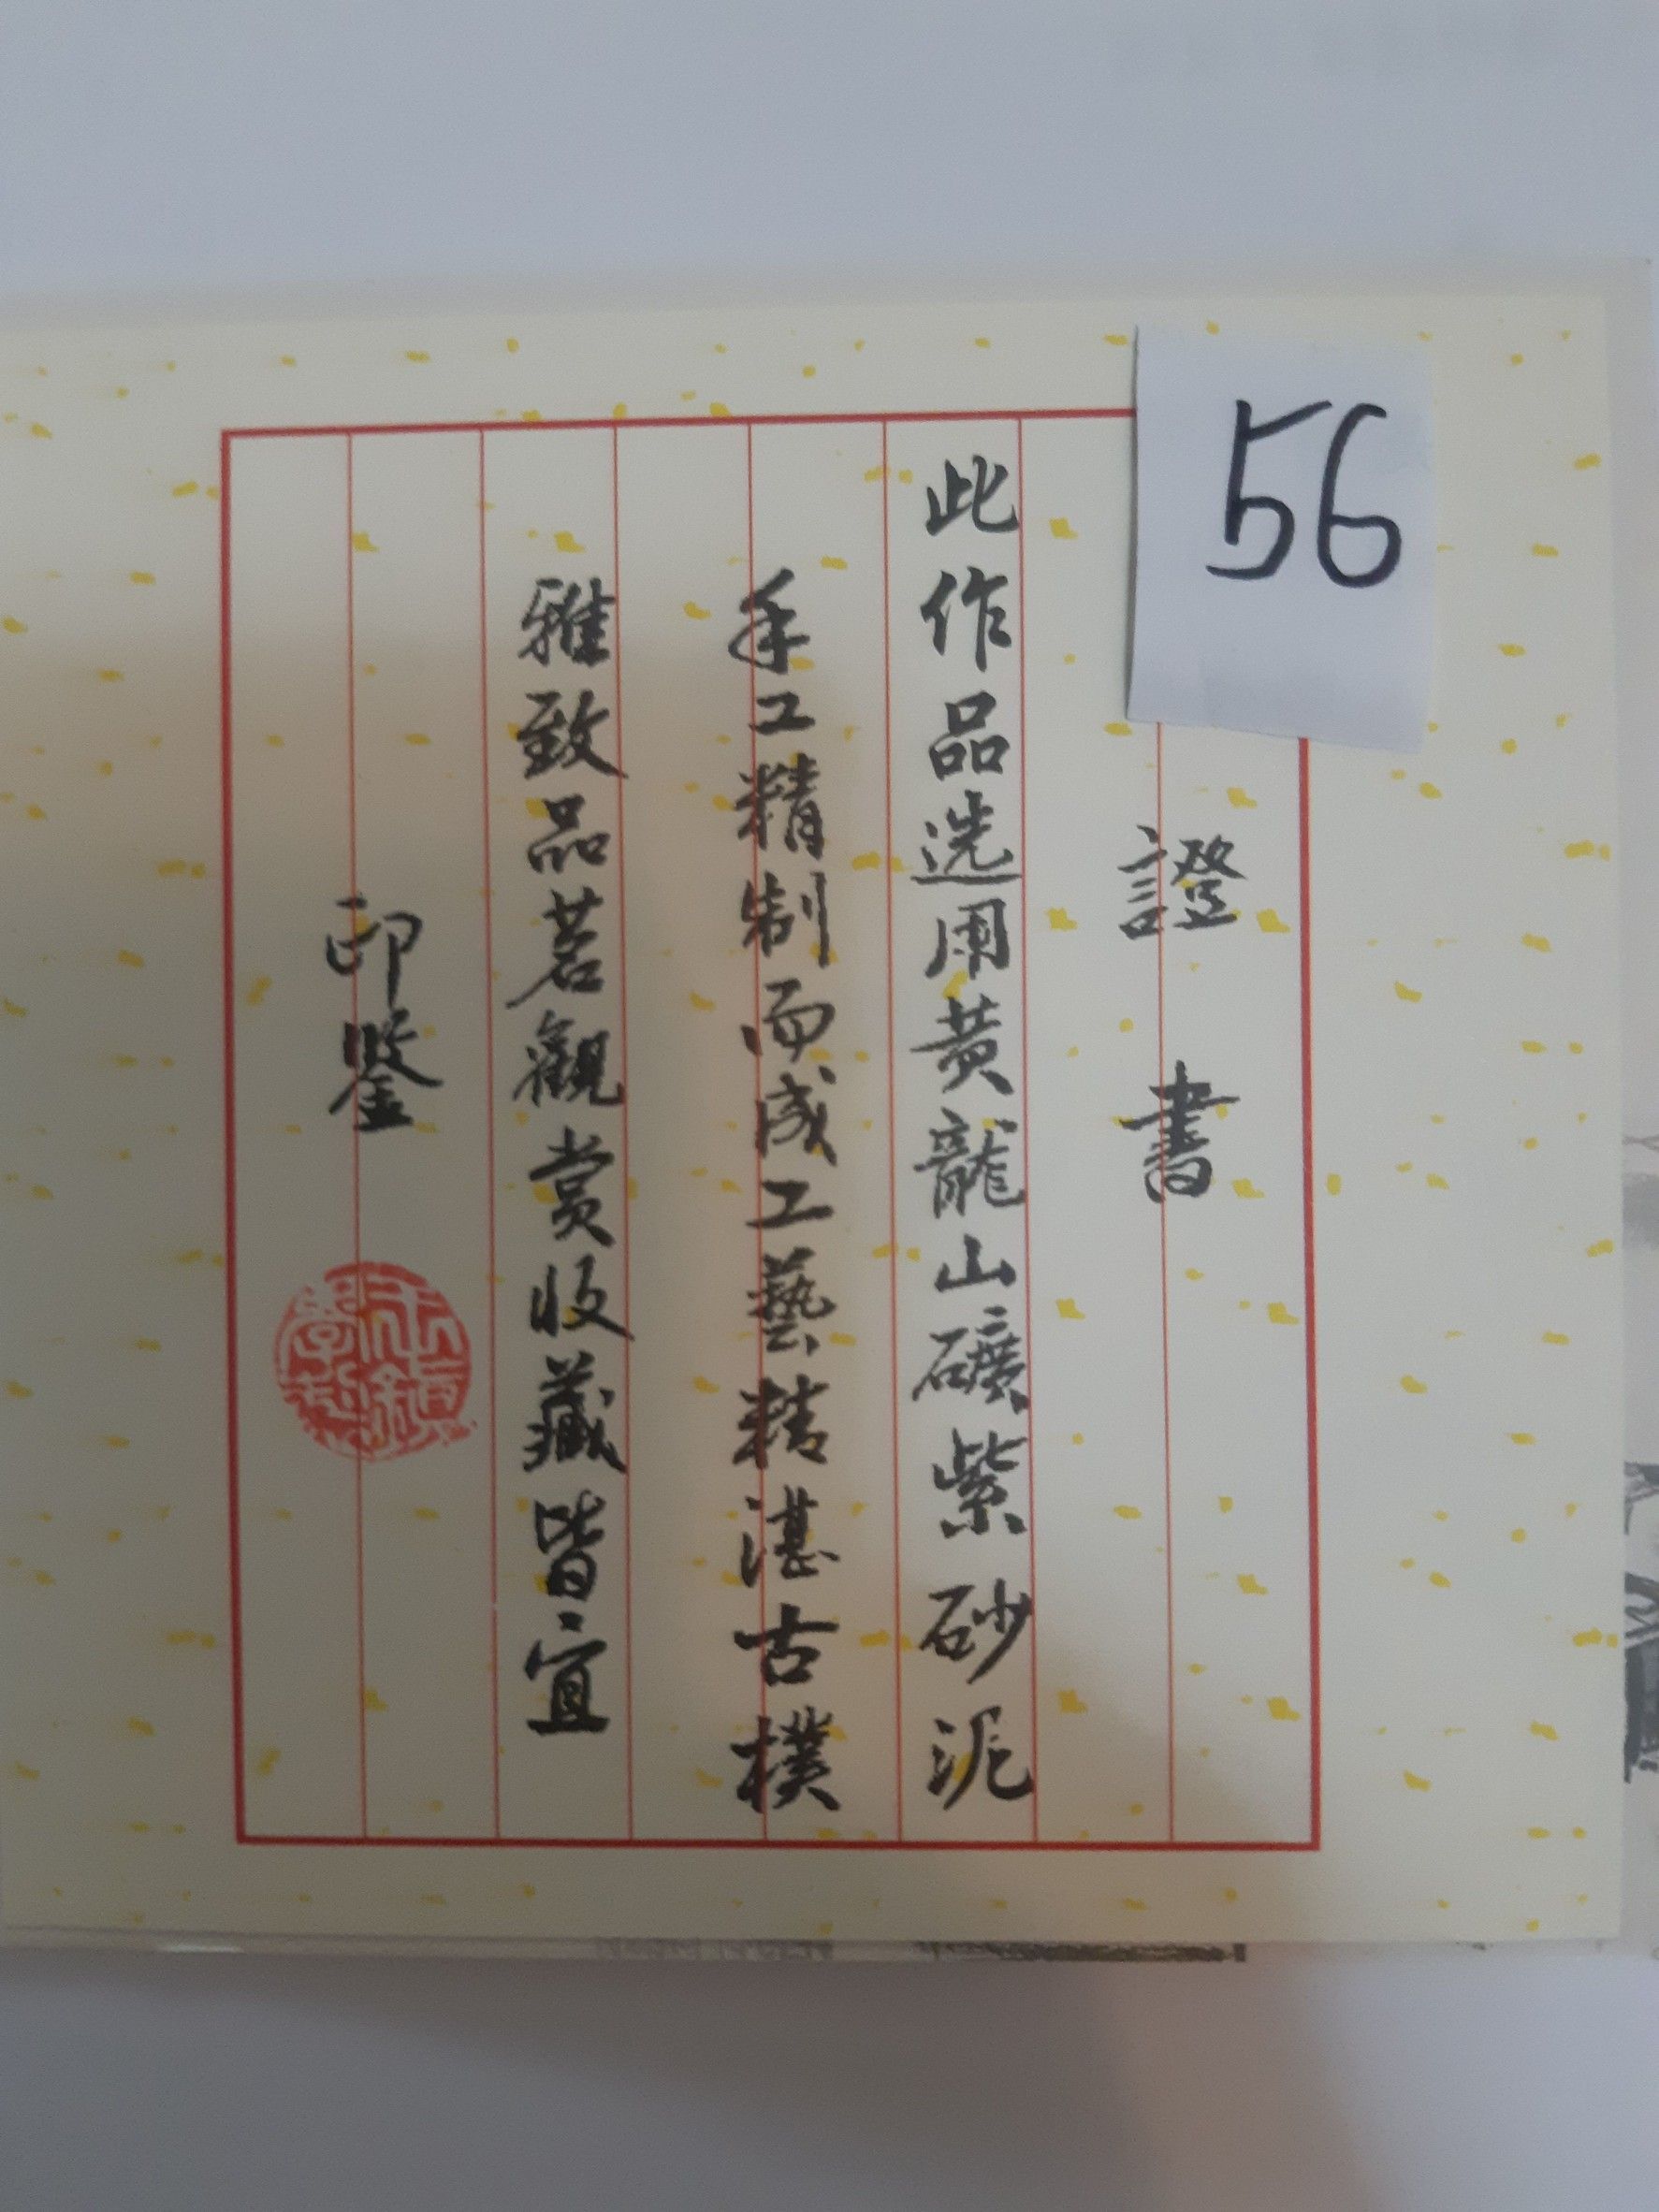 56
證書
此作品选用黄龍山礦紫砂泥
手工精制而成工藝精湛古樸
雅致品茗觀賞收藏皆宜
印鑒